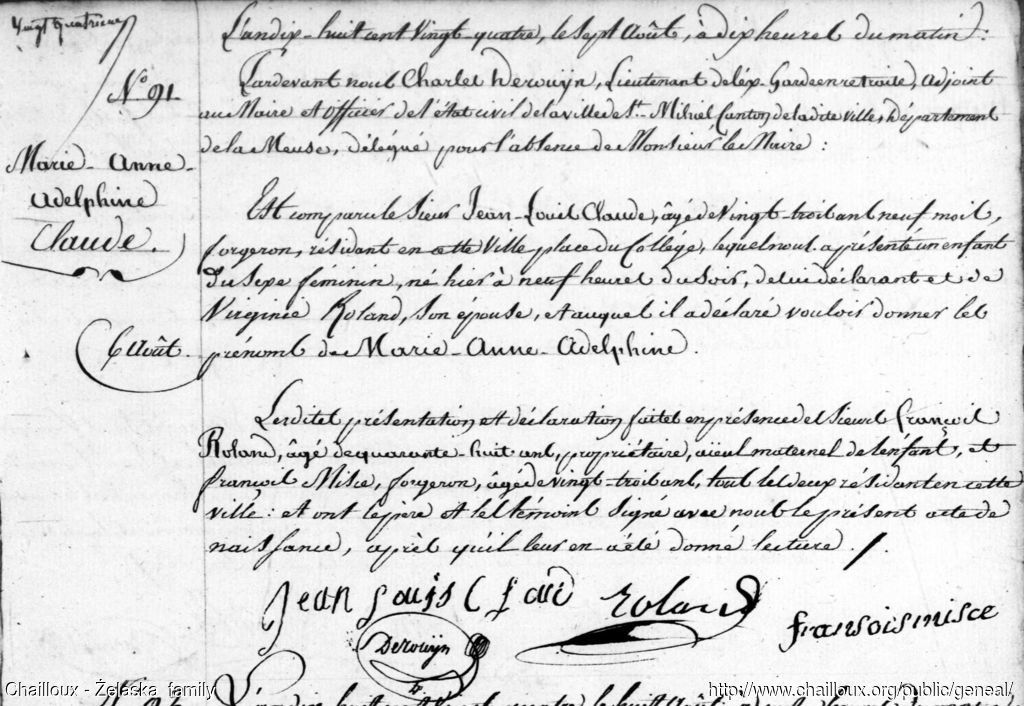 Vingt quatrième
N.º 91.
Marie-Anne-
Adelphine
Claude.
6 Août.
L'an dix-huit cent Vingt-quatre, le sept Août, à dix heures du matin :
Pardevant nous Charles Derouÿn, Lieutenant de l'ex-Garde en retraite, Adjoint
au Maire et Officier de l'état civil de la ville de St. Mihiel Canton de ladite Ville, Département
de la Meuse, délégué pour l'absence de Monsieur le Maire :
Est comparu le Sieur Jean-Louis Claude, âgé de Vingt-trois ans neuf mois,
forgeron, résidant en cette Ville place du Collége, lequel nous a présenté un enfant
du Sexe féminin, né hier à neuf heures du Soir, de lui déclarant et de
Virginie Roland, Son épouse, et auquel il a déclaré vouloir donner les
prénoms de Marie-Anne-Adelphine.
Lesdites présentation et déclaration faites en présence des Sieurs François
Roland, âgé de quarante-huit ans, propriétaire, aïeul maternel de l'enfant, et
françois Misce, forgeron, âgé de vingt-trois ans, tous les deux résidant en cette
ville : et ont le pere et les témoins Signé avec nous le présent acte de
naissance, après qu'il leur en a été donné lecture ./.
Jean Louis Claud
Roland
fransois misce
Derouÿn
Chailloux - Żelaska family
http://www.chailloux.org/public/geneal/